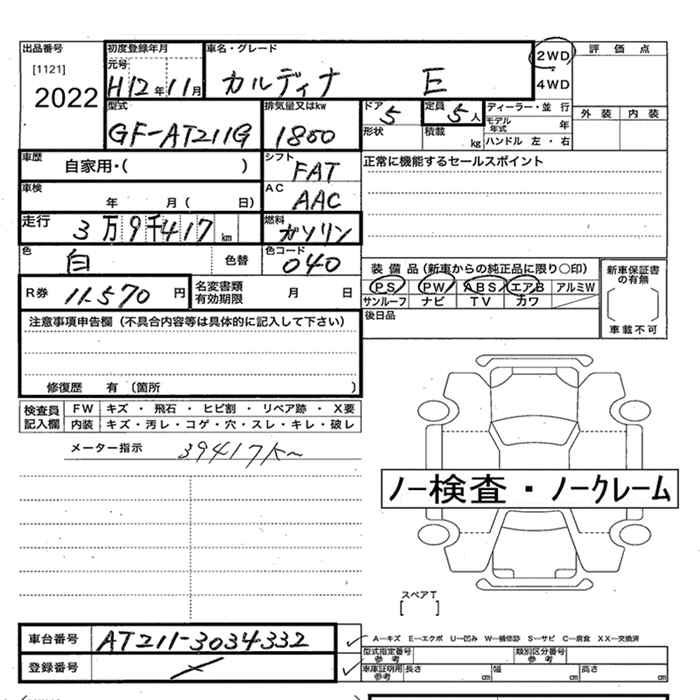 出品番号 初度登録年月 車名・グレード 2WD 評価点
[1121] 元号 4WD
2022 H12年11月 カルディナ E 外装 内装
型式 排気量又はkw ドア 定員 ディーラー・並行
GF-AT211G 1800 5 5人 モデル年式 年
形状 積載 kg ハンドル 左・右
車歴 自家用・( ) シフト FAT 正常に機能するセールスポイント
車検 年 月( 日) AC AAC
走行 3万9千417km 燃料 ガソリン
色 白 色替 色コード 040 装備品(新車からの純正品に限り○印) 新車保証書の有無
PS PW ABS エアB アルミW
R券 11-570円 名変書類有効期限 月 日 サンルーフ ナビ TV カワ
注意事項申告欄(不具合内容等は具体的に記入して下さい) 後日品 車載不可
修復歴 有(箇所 )
検査員記入欄 FW キズ・飛石・ヒビ割・リペア跡・X要
内装 キズ・汚レ・コゲ・穴・スレ・キレ・破レ
メーター指示 39417K
ノー検査・ノークレーム
スペアT
[ ]
車台番号 AT211-3034332 A―キズ E―エクボ U―凹み W―補修跡 S―サビ C―腐食 XX―交換済
型式指定番号 参考 類別区分番号 参考
登録番号 車庫証明用 参考 長さ cm 幅 cm 高さ cm